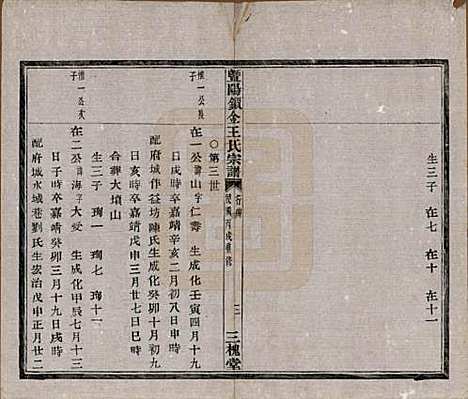 生三子 在七 在十 在十一
暨陽鎖金王氏宗譜
三
三槐堂
○第三世
惟一公長子
在一公諱山字仁壽 生成化壬寅四月十九
日戌時卒嘉靖辛亥二月初八日申時
配府城作益坊陳氏生成化癸卯十月初九
日亥時卒嘉靖戊申三月廿七日巳時
合葬大墳山
惟一公次子
在二公諱海字大受 生成化甲辰七月十三
生三子 珣一 珣七 珣十一
日子時卒嘉靖癸卯三月十九日戌時
配府城水城巷劉氏生宏治戊申正月廿二